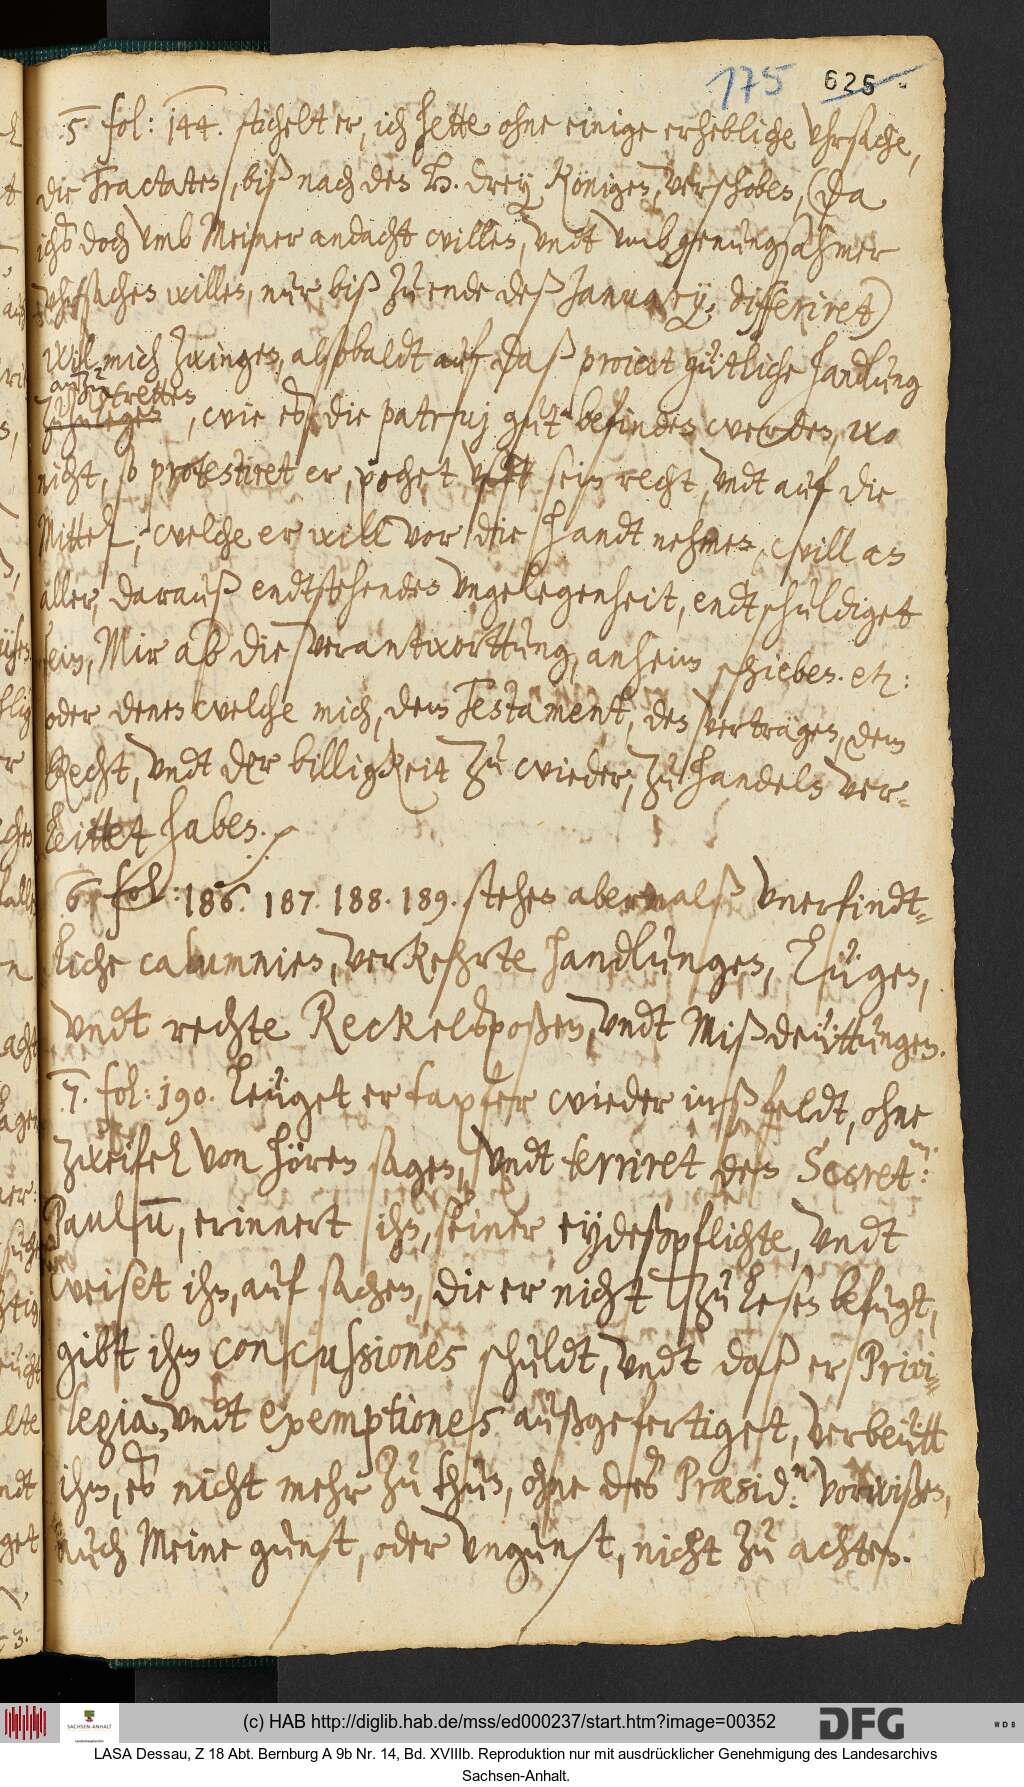 175 625
5. fol: 144. stichelt er, ich hette ohne einige erhebliche uhrsache,
die Tractaten, biß nach den H. drey Königen, verschoben, (da
ichs doch umb Meiner andacht willen, undt umb genungsahmer
uhrsachen willen, nur biß zu ende deß January, differiret)
will mich zwingen, alsobaldt auf daß project gütliche handlung
anzutretten
zuzulegen, wie es, die patruj gut befinden werden, wo
nicht, so protestiret er, pochet uff sein recht, undt auf die
Mittel, welche er will vor die handt nehmen, will an
aller, darauß endtstehenden ungelegenheit, endtschuldiget
sein, Mir aber die verantwortung, anheim schieben. etc:
oder denen welche mich, dem Testament, den verträgen, dem
Recht, undt der billigkeit zu wieder, zu handeln ver-
leittet haben.
6. fol: 186. 187. 188. 189. stehen abermalß unerfindt-
liche calumnien, verkehrte handlungen, lügen,
undt rechte Reckelsposßen, undt Mißdeüttungen.
7. fol: 190. leüget er tapfer wieder inß feldt, ohne
zweifel von hören sagen, undt terriret den Secret:m
Paulū, erinnert ihn, seiner eydeßpflichte, undt
weiset ihn, auf sachen, die er nicht zu lesen befugt,
gibt ihm concussiones schuldt, undt daß er Privi-
legia, undt exemptiones außgefertiget, verbeütt
ihm, es nicht mehr zu thun, ohne des Præsid:n vorwißen,
auch Meine gunst, oder ungunst, nicht zu achten.
(c) HAB http://diglib.hab.de/mss/ed000237/start.htm?image=00352
DFG
WDB
SACHSEN-ANHALT
LASA Dessau, Z 18 Abt. Bernburg A 9b Nr. 14, Bd. XVIIIb. Reproduktion nur mit ausdrücklicher Genehmigung des Landesarchivs
Sachsen-Anhalt.